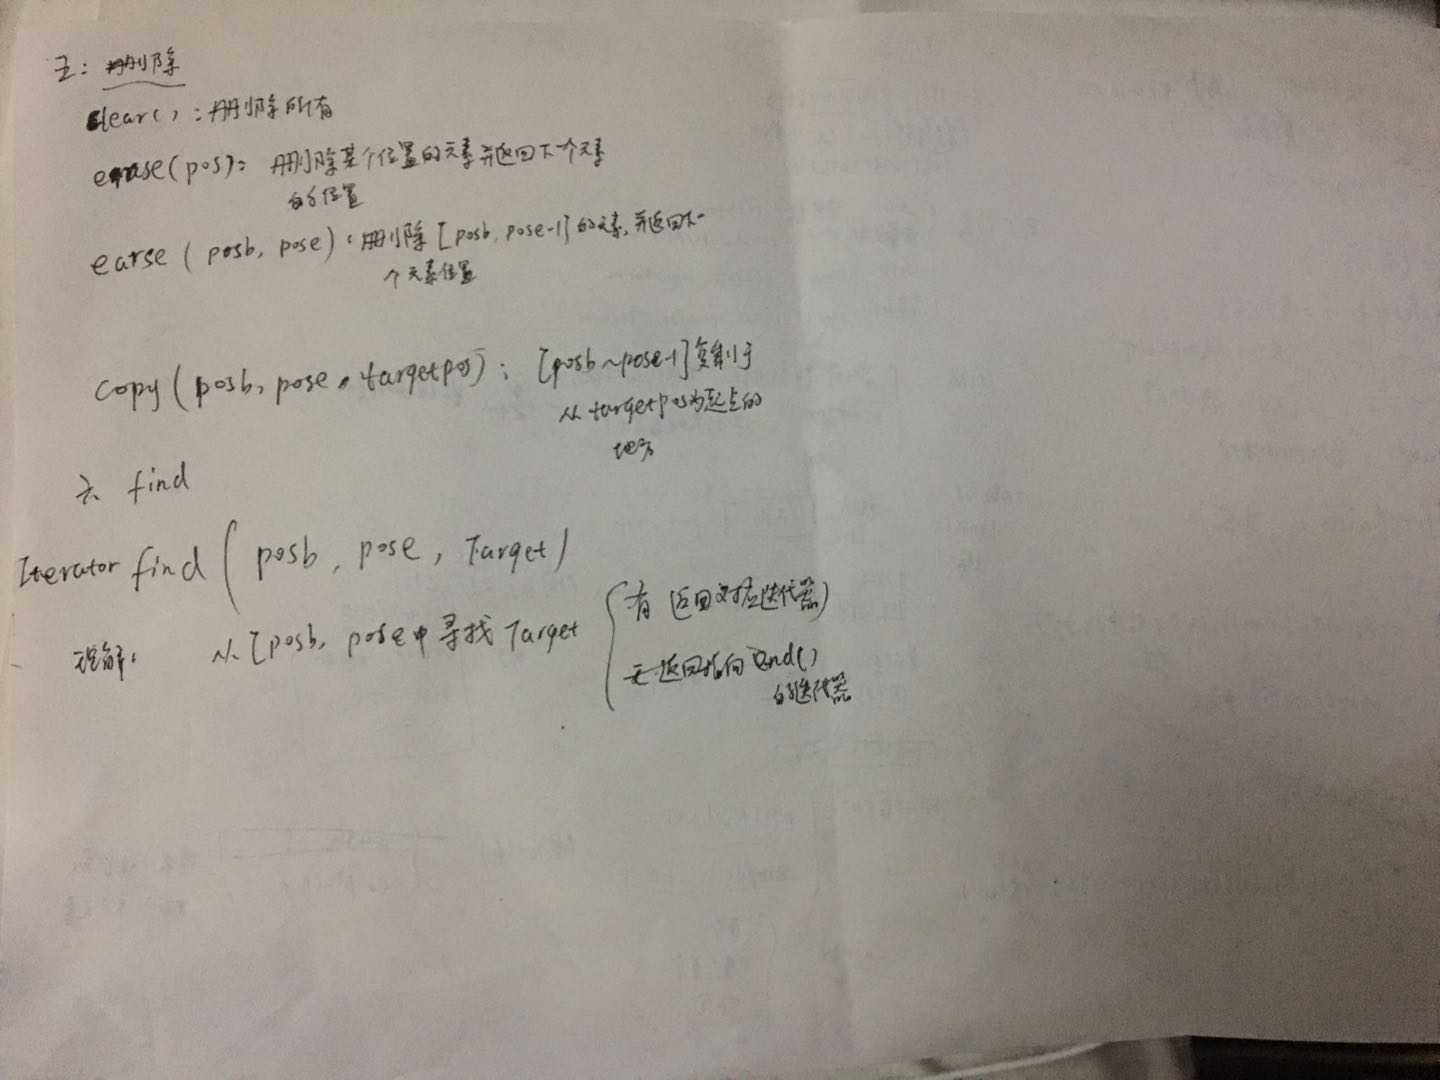 五:删除
clear():删除所有
erase(pos):删除某个位置的元素并返回下一个元素
的位置
earse(posb, pose):删除[posb, pose-1]的元素,并返回下一
个元素位置
copy(posb, pose, targetpos):[posb~pose-1]复制于
从targetpos为起点的
地方
六 find
Iterator find(posb, pose, Target)
理解:从[posb, pose中寻找Target
有 返回对应迭代器)
无返回指向end()
的迭代器